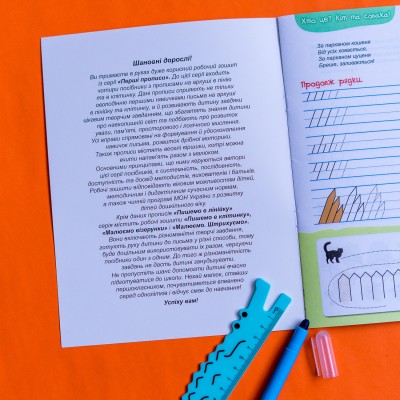 Шановні дорослі!
Ви тримаєте в руках дуже корисний робочий зошит
із серії «Перші прописи». До цієї серії входить
чотири посібники з прописами на аркуші в лінію
та в клітинку. Дані прописи сприяють не тільки
оволодінню першими навичками письма на аркуші
в лінійку та клітинку, а й розвивають дитину завдяки
цікавим творчим завданням, що збагатять знання дитини
про навколишній світ та подбають про розвиток
уваги, пам'яті, просторового і логічного мислення.
Усі вправи спрямовані на формування й удосконалення
навичок письма, розвиток дрібної моторики.
Також прописи містять веселі віршки, котрі можна
вчити напам'ять разом з малюком.
Основними принципами, що ними керуються автори
цієї серії посібників, є системність, послідовність,
доступність та досвід методистів, вихователів і батьків.
Робочі зошити відповідають віковим можливостям дітей,
методичним і дидактичним сучасним нормам,
а також чинній програмі МОН України з розвитку
дітей дошкільного віку.
Крім даних прописів «Пишемо в лінійку»
серія містить робочі зошити «Пишемо в клітинку»,
«Малюємо візерунки» і «Малюємо. Штрихуємо».
Вони включають різноманітні творчі завдання,
готують руку дитини до письма у різні способи, тому
буде доцільним використовувати їх разом, чергуючи
посібники один з одним. До того ж різноманітність
завдань не дасть дитині занудьгувати.
Не пропустіть шанс допомогти дитині вчасно
підготуватися до школи. Нехай малюк, ставши
першокласником, почуватиметься впевнено
серед однолітків і відчує смак до навчання!
Успіху вам!
Хто це? Кіт та собака!
За парканом кошеня
Від усіх ховається,
За парканом цуценя
Бреше, заливається!
Продовж рядки.